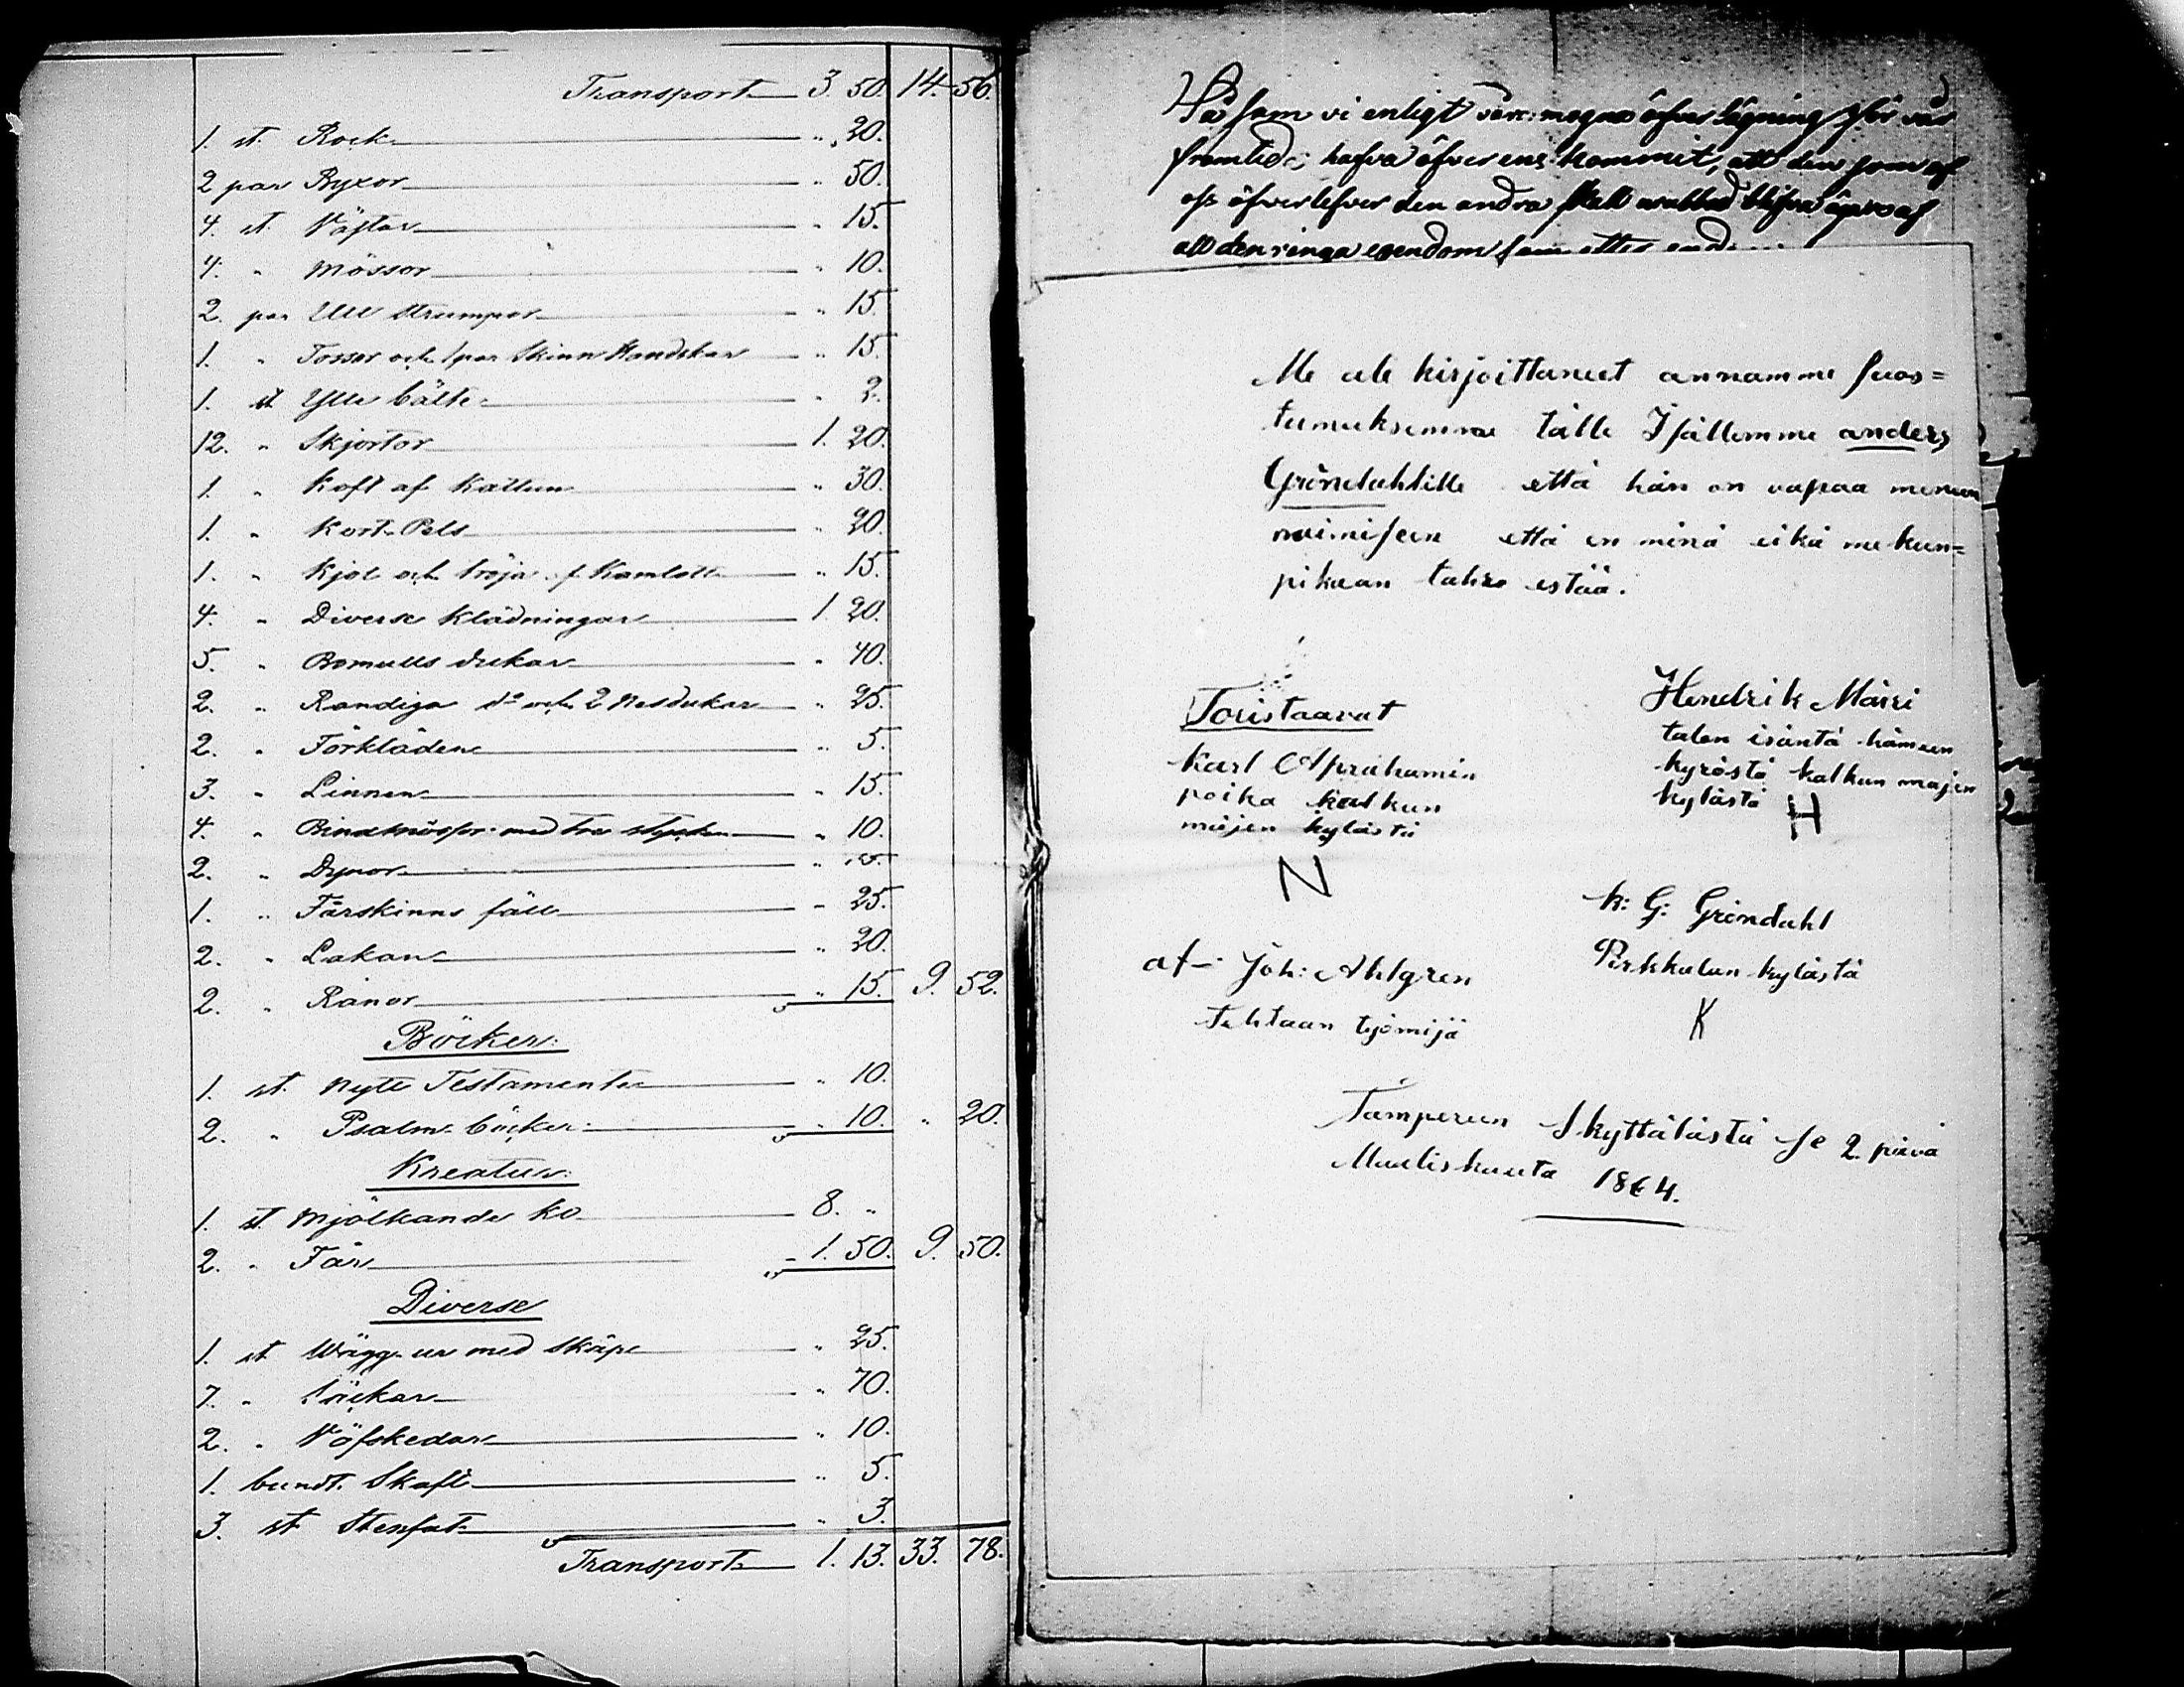 Transport 3. 50. 14. 56.
1. st. Rock " 20.
2 par Byxor " 50.
4. st. Västar " 15.
4. " Mössor " 10.
2. par Ull strumpor " 15.
1. " Tossor och 1 par Skinn Handskar " 15.
1. st Ylle bälte " 2.
12. " Skjortor 1. 20.
1. " Koft af Kattun " 30.
1. " Kort Pels " 20.
1. " Kjol och tröja af Kamlott " 15.
4. " Diverse Klädningar 1. 20.
5. " Bomulls dukar " 40.
2. " Randiga do och 2 Näsdukar " 25.
2. " Förkläden " 5.
3. " Linnen " 15.
4. " Bindmössor med tre stycken " 10.
2. " Dynor "
1. " Fårskinns fäll " 25.
2. " Lakan " 20.
2. " Ranor " 15. 9. 52.
Böcker:
1. st. Nytt Testamente " 10.
2. " Psalm böcker " 10. " 20.
Kreatur:
1. st Mjölkande ko 8. "
2. " Får 1. 50. 9. 50.
Diverse
1. st Wägg ur med Skåp " 25.
7. " Säckar " 70.
2. " Väfskedar " 10.
1. bundt. Skaft " 5.
3. st Stenfat " 3.
Transport 1. 13. 33. 78.
Så som vi enligt vår mogna öfver lägning för vår
framtid hafva öfverens kommit, att den som af
oss öfverlefver den andra skall blifva ägare af
all den ringa egendom som efter
Me ale kirjoittaneet annamme suos=
tumuksemme tälle Isällemme anders
Gröndahlille että hän on vapaa menem
naimiseen että en minä eikä me kun=
pikaan tahro estää.
Toristaavat
Karl Aprahamin
poika kalkun
mäjen kylästä
N
Hendrik Mäisi
talon isäntä hämeen
kyröstä kalkun majen
kylästä H
K: G: Gröndahl
Pirkkalan kylästä
K
af Joh: Ahlgren
Tehtaan työmijä
Tampereen Skyttälästä se 2. pävä
Maaliskuuta 1864.